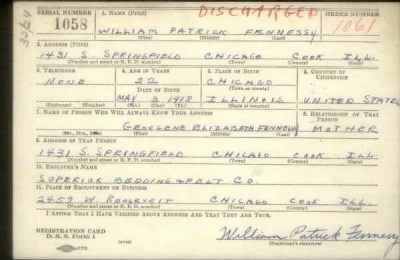 SERIAL NUMBER 1. NAME (Print) DISCHARGED ORDER NUMBER
1058 WILLIAM PATRICK FENNESSY 1061
(First) (Middle) (Last)
2. ADDRESS (Print)
1431 S. SPRINGFIELD CHICAGO COOK ILL.
(Number and street or R. F. D. number) (Town) (County) (State)
3. TELEPHONE 4. AGE IN YEARS 5. PLACE OF BIRTH 6. COUNTRY OF CITIZENSHIP
NONE 22 CHICAGO
DATE OF BIRTH (Town or county)
MAY 3 1918 ILLINOIS UNITED STATES
(Exchange) (Number) (Mo.) (Day) (Yr.) (State or country)
7. NAME OF PERSON WHO WILL ALWAYS KNOW YOUR ADDRESS 8. RELATIONSHIP OF THAT PERSON
ELIZABETH FENNESSY MOTHER
(Mr., Mrs., Miss) (First) (Middle) (Last)
9. ADDRESS OF THAT PERSON
1431 S. SPRINGFIELD CHICAGO COOK ILL.
(Number and street or R. F. D. number) (Town) (County) (State)
10. EMPLOYER'S NAME
SUPERIOR BEDDING & FELT CO.
11. PLACE OF EMPLOYMENT OR BUSINESS
2459 W. ROOSEVELT CHICAGO COOK ILL.
(Number and street or R. F. D. number) (Town) (County) (State)
I AFFIRM THAT I HAVE VERIFIED ABOVE ANSWERS AND THAT THEY ARE TRUE.
REGISTRATION CARD
D. S. S. Form 1 William Patrick Fennessy
(Registrant's signature)